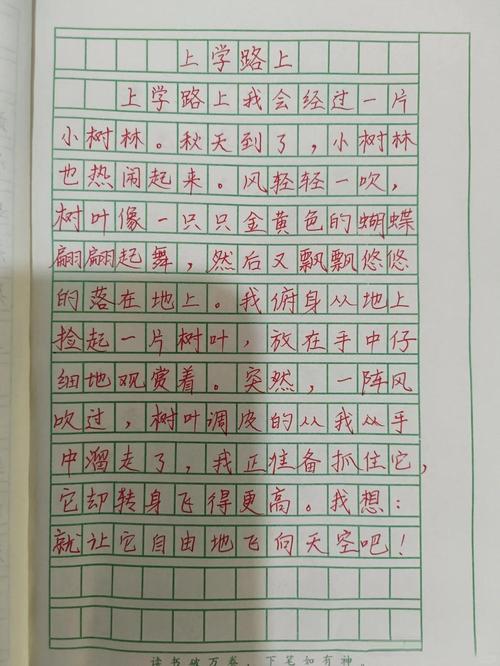 上学路上
上学路上我会经过一片
小树林。秋天到了，小树林
也热闹起来。风轻轻一吹，
树叶像一只只金黄色的蝴蝶
翩翩起舞，然后又飘飘悠悠
的落在地上。我俯身从地上
捡起一片树叶，放在手中仔
细地观赏着。突然，一阵风
吹过，树叶调皮的从我从手
中溜走了，我正准备抓住它，
它却转身飞得更高。我想：
就让它自由地飞向天空吧！
读书破万卷，下笔如有神。